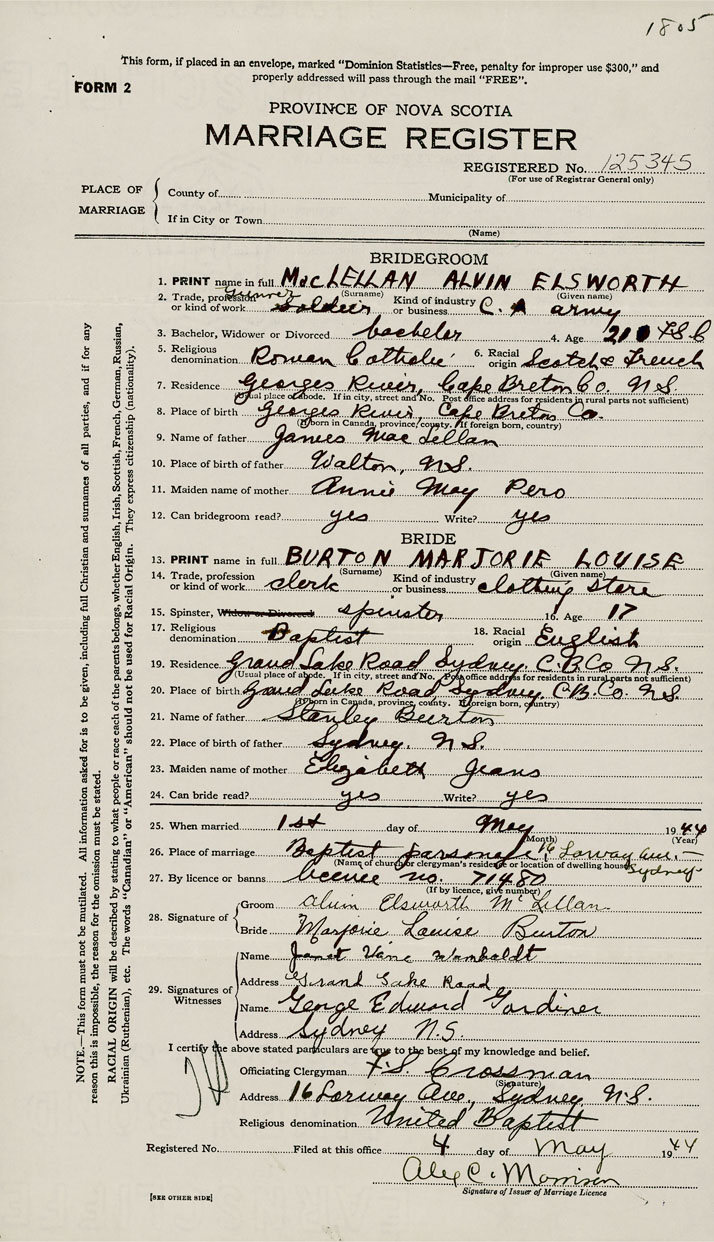 1805
This form, if placed in an envelope, marked "Dominion Statistics—Free, penalty for improper use $300," and
properly addressed will pass through the mail "FREE".
FORM 2
PROVINCE OF NOVA SCOTIA
MARRIAGE REGISTER
REGISTERED No. 125345
(For use of Registrar General only)
PLACE OF MARRIAGE
County of Municipality of
If in City or Town
(Name)
BRIDEGROOM
1. PRINT name in full MacLELLAN ALVIN ELSWORTH
(Surname) (Given name)
gunner
2. Trade, profession or kind of work Soldier Kind of industry or business C. A army
3. Bachelor, Widower or Divorced bachelor 4. Age 21
5. Religious denomination Roman Catholic 6. Racial origin Scotch & French
7. Residence Georges River, Cape Breton Co. N.S.
(Usual place of abode. If in city, street and No. Post office address for residents in rural parts not sufficient)
8. Place of birth Georges River, Cape Breton Co.
(If born in Canada, province, county. If foreign born, country)
9. Name of father James MacLellan
10. Place of birth of father Walton, N.S.
11. Maiden name of mother Annie May Pero
12. Can bridegroom read? yes Write? yes
BRIDE
13. PRINT name in full BURTON MARJORIE LOUISE
(Surname) (Given name)
14. Trade, profession or kind of work clerk Kind of industry or business clothing store
15. Spinster, Widow or Divorced spinster 16. Age 17
17. Religious denomination Baptist 18. Racial origin English
19. Residence Grand Lake Road Sydney, C.B.Co. N.S.
(Usual place of abode. If in city, street and No. Post office address for residents in rural parts not sufficient)
20. Place of birth Grand Lake Road Sydney C.B. Co. N.S.
(If born in Canada, province, county. If foreign born, country)
21. Name of father Stanley Burton
22. Place of birth of father Sydney. N.S.
23. Maiden name of mother Elizabeth Jeans
24. Can bride read? yes Write? yes
25. When married 1st day of May 1944
(Month) (Year)
26. Place of marriage Baptist parsonage, 16 Lorway Ave. — Sydney
(Name of church or clergyman's residence or location of dwelling house)
27. By licence or banns licence no. 71480
(If by licence, give number)
28. Signature of
Groom Alvin Elsworth McLellan
Bride Marjorie Louise Burton
29. Signatures of Witnesses
Name Janet Wamboldt
Address Grand Lake Road
Name George Edward Gardiner
Address Sydney N.S.
I certify the above stated particulars are true to the best of my knowledge and belief.
Officiating Clergyman F.S. Crossman
(Signature)
Address 16 Lorway Ave., Sydney, N.S.
Religious denomination United Baptist
Registered No. Filed at this office 4 day of May 1944
Alex C. Morrison
Signature of Issuer of Marriage Licence
[SEE OTHER SIDE]
NOTE.—This form must not be mutilated. All information asked for is to be given, including full Christian and surnames of all parties, and if for any
reason this is impossible, the reason for the omission must be stated.
RACIAL ORIGIN will be described by stating to what people or race each of the parents belongs, whether English, Irish, Scottish, French, German, Russian,
Ukrainian (Ruthenian), etc. The words "Canadian" or "American" should not be used for Racial Origin. They express citizenship (nationality).